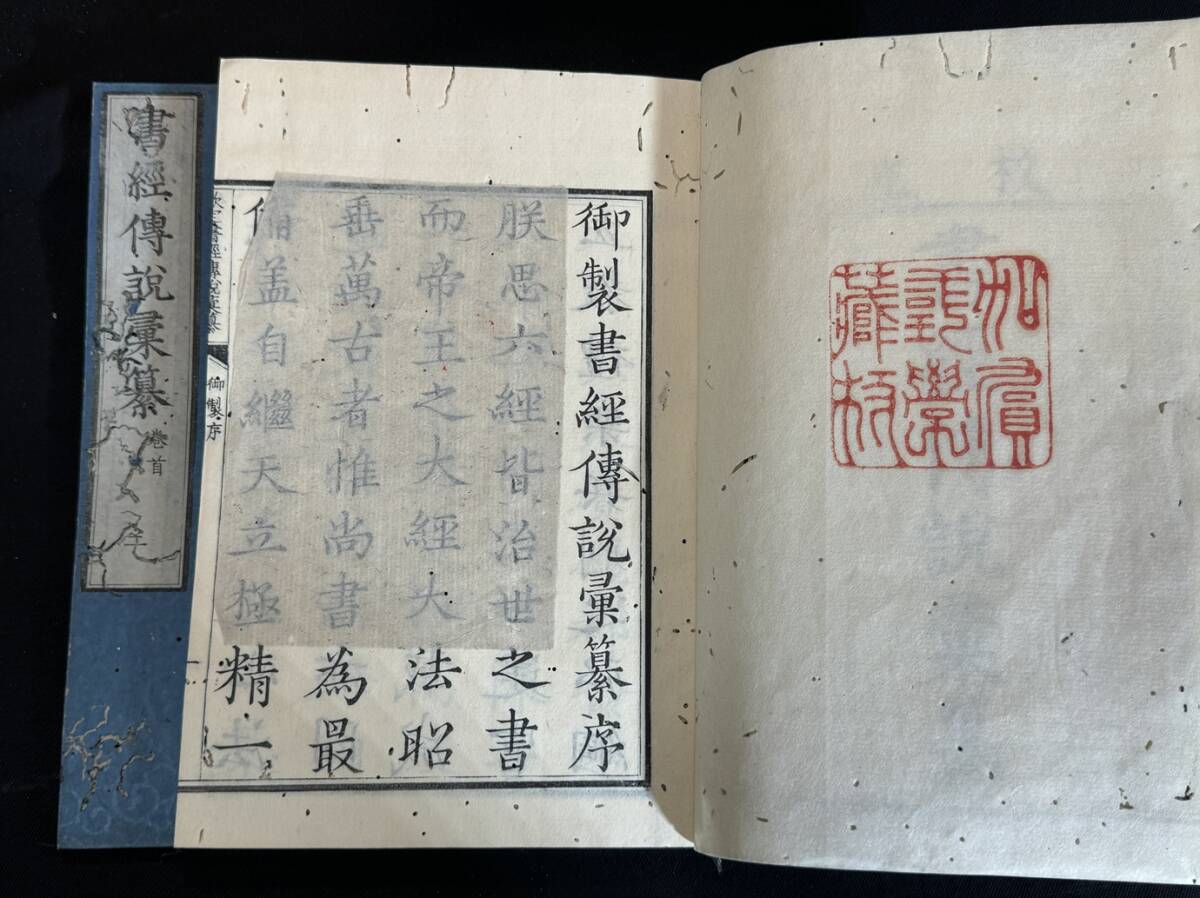 加賀
國學
藏板
御製書經傳說彙纂序
朕思六經皆治世之書
而帝王之大經大法昭
垂萬古者惟尚書為最
備盖自繼天立極精一
欽定書經傳說彙纂
御製序
書經傳說彙纂 卷首 全